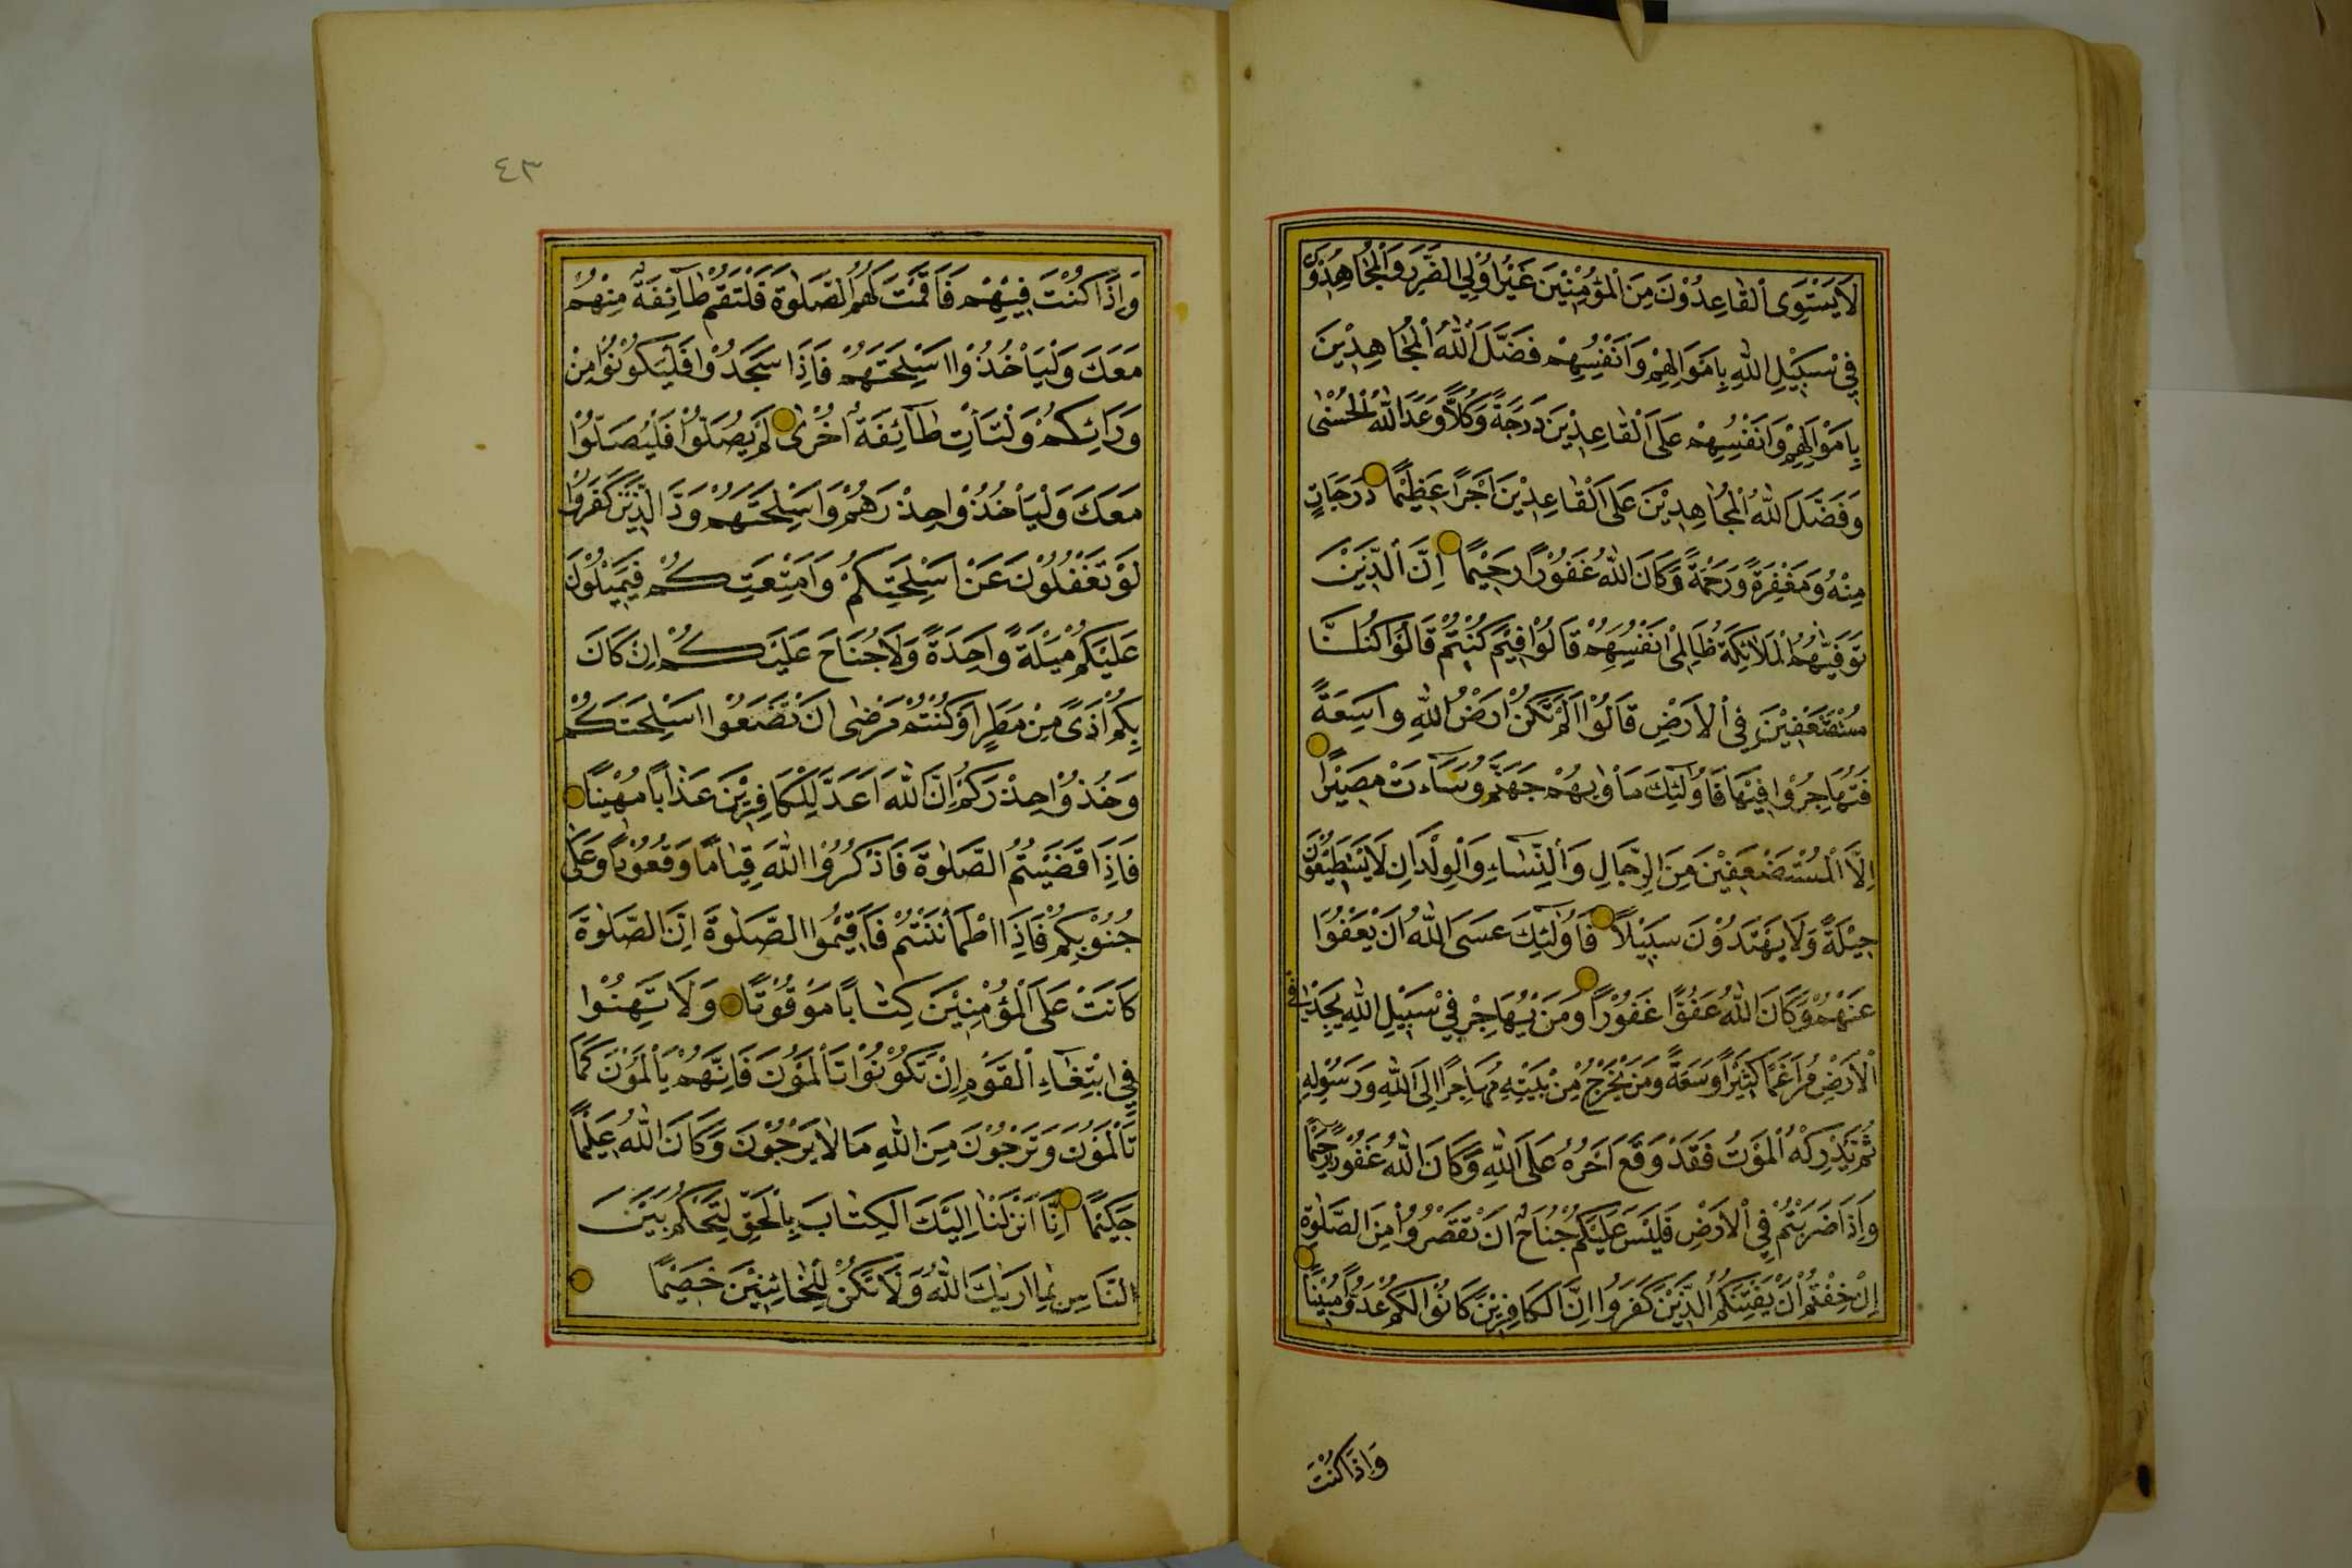 لَا يَسْتَوِى الْقَاعِدُوْنَ مِنَ الْمُؤْمِنِيْنَ غَيْرُ اُوْلِي الضَّرَرِ وَالْمُجَاهِدُوْنَ
فِيْ سَبِيْلِ اللهِ بِاَمْوَالِهِمْ وَاَنْفُسِهِمْ فَضَّلَ اللهُ الْمُجَاهِدِيْنَ
بِاَمْوَالِهِمْ وَاَنْفُسِهِمْ عَلَى الْقَاعِدِيْنَ دَرَجَةً وَكُلًّا وَعَدَ اللهُ الْحُسْنٰى
وَفَضَّلَ اللهُ الْمُجَاهِدِيْنَ عَلَى الْقَاعِدِيْنَ اَجْرًا عَظِيْمًا دَرَجَاتٍ
مِنْهُ وَمَغْفِرَةً وَرَحْمَةً وَكَانَ اللهُ غَفُوْرًا رَحِيْمًا اِنَّ الَّذِيْنَ
تَوَفّٰيهُمُ الْمَلَائِكَةُ ظَالِمِىْ اَنْفُسِهِمْ قَالُوْا فِيْمَ كُنْتُمْ قَالُوْا كُنَّا
مُسْتَضْعَفِيْنَ فِى الْاَرْضِ قَالُوْا اَلَمْ تَكُنْ اَرْضُ اللهِ وَاسِعَةً
فَتُهَاجِرُوْا فِيْهَا فَاُولٰئِكَ مَاْوٰيهُمْ جَهَنَّمُ وَسَاءَتْ مَصِيْرًا
اِلَّا الْمُسْتَضْعَفِيْنَ مِنَ الرِّجَالِ وَالنِّسَاءِ وَالْوِلْدَانِ لَا يَسْتَطِيْعُوْنَ
حِيْلَةً وَلَا يَهْتَدُوْنَ سَبِيْلًا فَاُولٰئِكَ عَسَى اللهُ اَنْ يَعْفُوَا
عَنْهُمْ وَكَانَ اللهُ عَفُوًّا غَفُوْرًا وَمَنْ يُهَاجِرْ فِيْ سَبِيْلِ اللهِ يَجِدْ فِى
الْاَرْضِ مُرَاغَمًا كَثِيْرًا وَسَعَةً وَمَنْ يَخْرُجْ مِنْ بَيْتِهِ مُهَاجِرًا اِلَى اللهِ وَرَسُوْلِهِ
ثُمَّ يُدْرِكْهُ الْمَوْتُ فَقَدْ وَقَعَ اَجْرُهُ عَلَى اللهِ وَكَانَ اللهُ غَفُوْرًا رَحِيْمًا
وَاِذَا ضَرَبْتُمْ فِي الْاَرْضِ فَلَيْسَ عَلَيْكُمْ جُنَاحٌ اَنْ تَقْصُرُوْا مِنَ الصَّلٰوةِ
اِنْ خِفْتُمْ اَنْ يَفْتِنَكُمُ الَّذِيْنَ كَفَرُوا اِنَّ الْكَافِرِيْنَ كَانُوْا لَكُمْ عَدُوًّا مُبِيْنًا
وَاِذَا كُنْتَ
٤٣
وَاِذَا كُنْتَ فِيْهِمْ فَاَقَمْتَ لَهُمُ الصَّلٰوةَ فَلْتَقُمْ طَائِفَةٌ مِنْهُمْ
مَعَكَ وَلْيَاْخُذُوْا اَسْلِحَتَهُمْ فَاِذَا سَجَدُوْا فَلْيَكُوْنُوْا مِنْ
وَرَائِكُمْ وَلْتَاْتِ طَائِفَةٌ اُخْرٰى لَمْ يُصَلُّوْا فَلْيُصَلُّوْا
مَعَكَ وَلْيَاْخُذُوْا حِذْرَهُمْ وَاَسْلِحَتَهُمْ وَدَّ الَّذِيْنَ كَفَرُوْا
لَوْ تَغْفُلُوْنَ عَنْ اَسْلِحَتِكُمْ وَاَمْتِعَتِكُمْ فَيَمِيْلُوْنَ
عَلَيْكُمْ مَيْلَةً وَاحِدَةً وَلَا جُنَاحَ عَلَيْكُمْ اِنْ كَانَ
بِكُمْ اَذًى مِنْ مَطَرٍ اَوْ كُنْتُمْ مَرْضٰى اَنْ تَضَعُوْا اَسْلِحَتَكُمْ
وَخُذُوْا حِذْرَكُمْ اِنَّ اللهَ اَعَدَّ لِلْكَافِرِيْنَ عَذَابًا مُهِيْنًا
فَاِذَا قَضَيْتُمُ الصَّلٰوةَ فَاذْكُرُوْا اللهَ قِيَامًا وَقُعُوْدًا وَعَلٰى
جُنُوْبِكُمْ فَاِذَا اطْمَأْنَنْتُمْ فَاَقِيْمُوا الصَّلٰوةَ اِنَّ الصَّلٰوةَ
كَانَتْ عَلَى الْمُؤْمِنِيْنَ كِتَابًا مَوْقُوْتًا وَلَا تَهِنُوْا
فِي ابْتِغَاءِ الْقَوْمِ اِنْ تَكُوْنُوْا تَأْلَمُوْنَ فَاِنَّهُمْ يَأْلَمُوْنَ كَمَا
تَأْلَمُوْنَ وَتَرْجُوْنَ مِنَ اللهِ مَا لَا يَرْجُوْنَ وَكَانَ اللهُ عَلِيْمًا
حَكِيْمًا اِنَّا اَنْزَلْنَا اِلَيْكَ الْكِتَابَ بِالْحَقِّ لِتَحْكُمَ بَيْنَ
النَّاسِ بِمَا اَرٰيكَ اللهُ وَلَا تَكُنْ لِلْخَائِنِيْنَ خَصِيْمًا